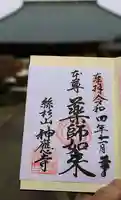 奉拝 令和四年十一月
本尊 薬師如来
縣杉山 神應寺